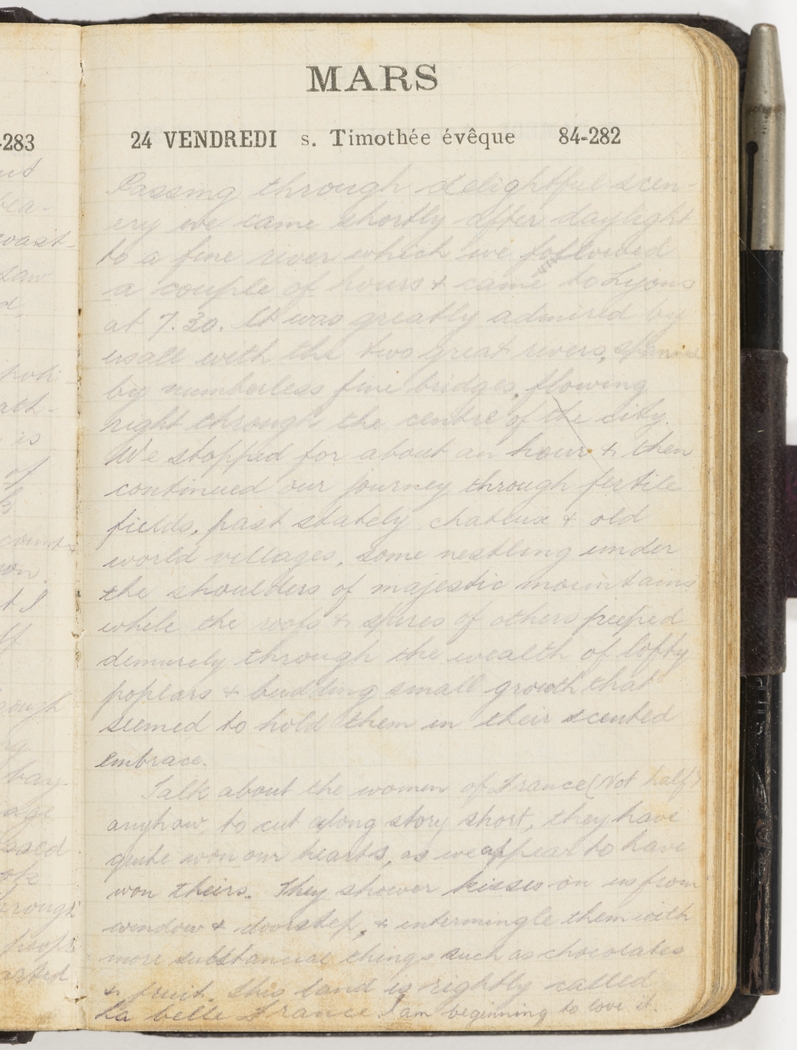 MARS
-283
24 VENDREDI s. Timothée évêque 84-282
Passing through delightful scen-
ery we came shortly after daylight
to a fine river which we followed
a couple of hours & came to Lyons
at 7.30. It was greatly admired by
us all with the two great rivers, spanned
by numberless fine bridges, flowing
right through the centre of the city.
We stopped for about an hour & then
continued our journey through fertile
fields, past stately chateux & old
world villages, some nestling under
the shoulders of majestic mountains
while the roofs & spires of others peeped
demurely through the wealth of lofty
poplars & budding small growth that
seemed to hold them in their scented
embrace.
Talk about the women of France (Not half)
anyhow, to cut along story short, they have
quite won our hearts, as we appear to have
won theirs. They shower kisses on us from
window & doorstep, & intermingle them with
more substancial things such as chocolates
& fruit. This land is rightly called
La belle France I am beginning to love it.